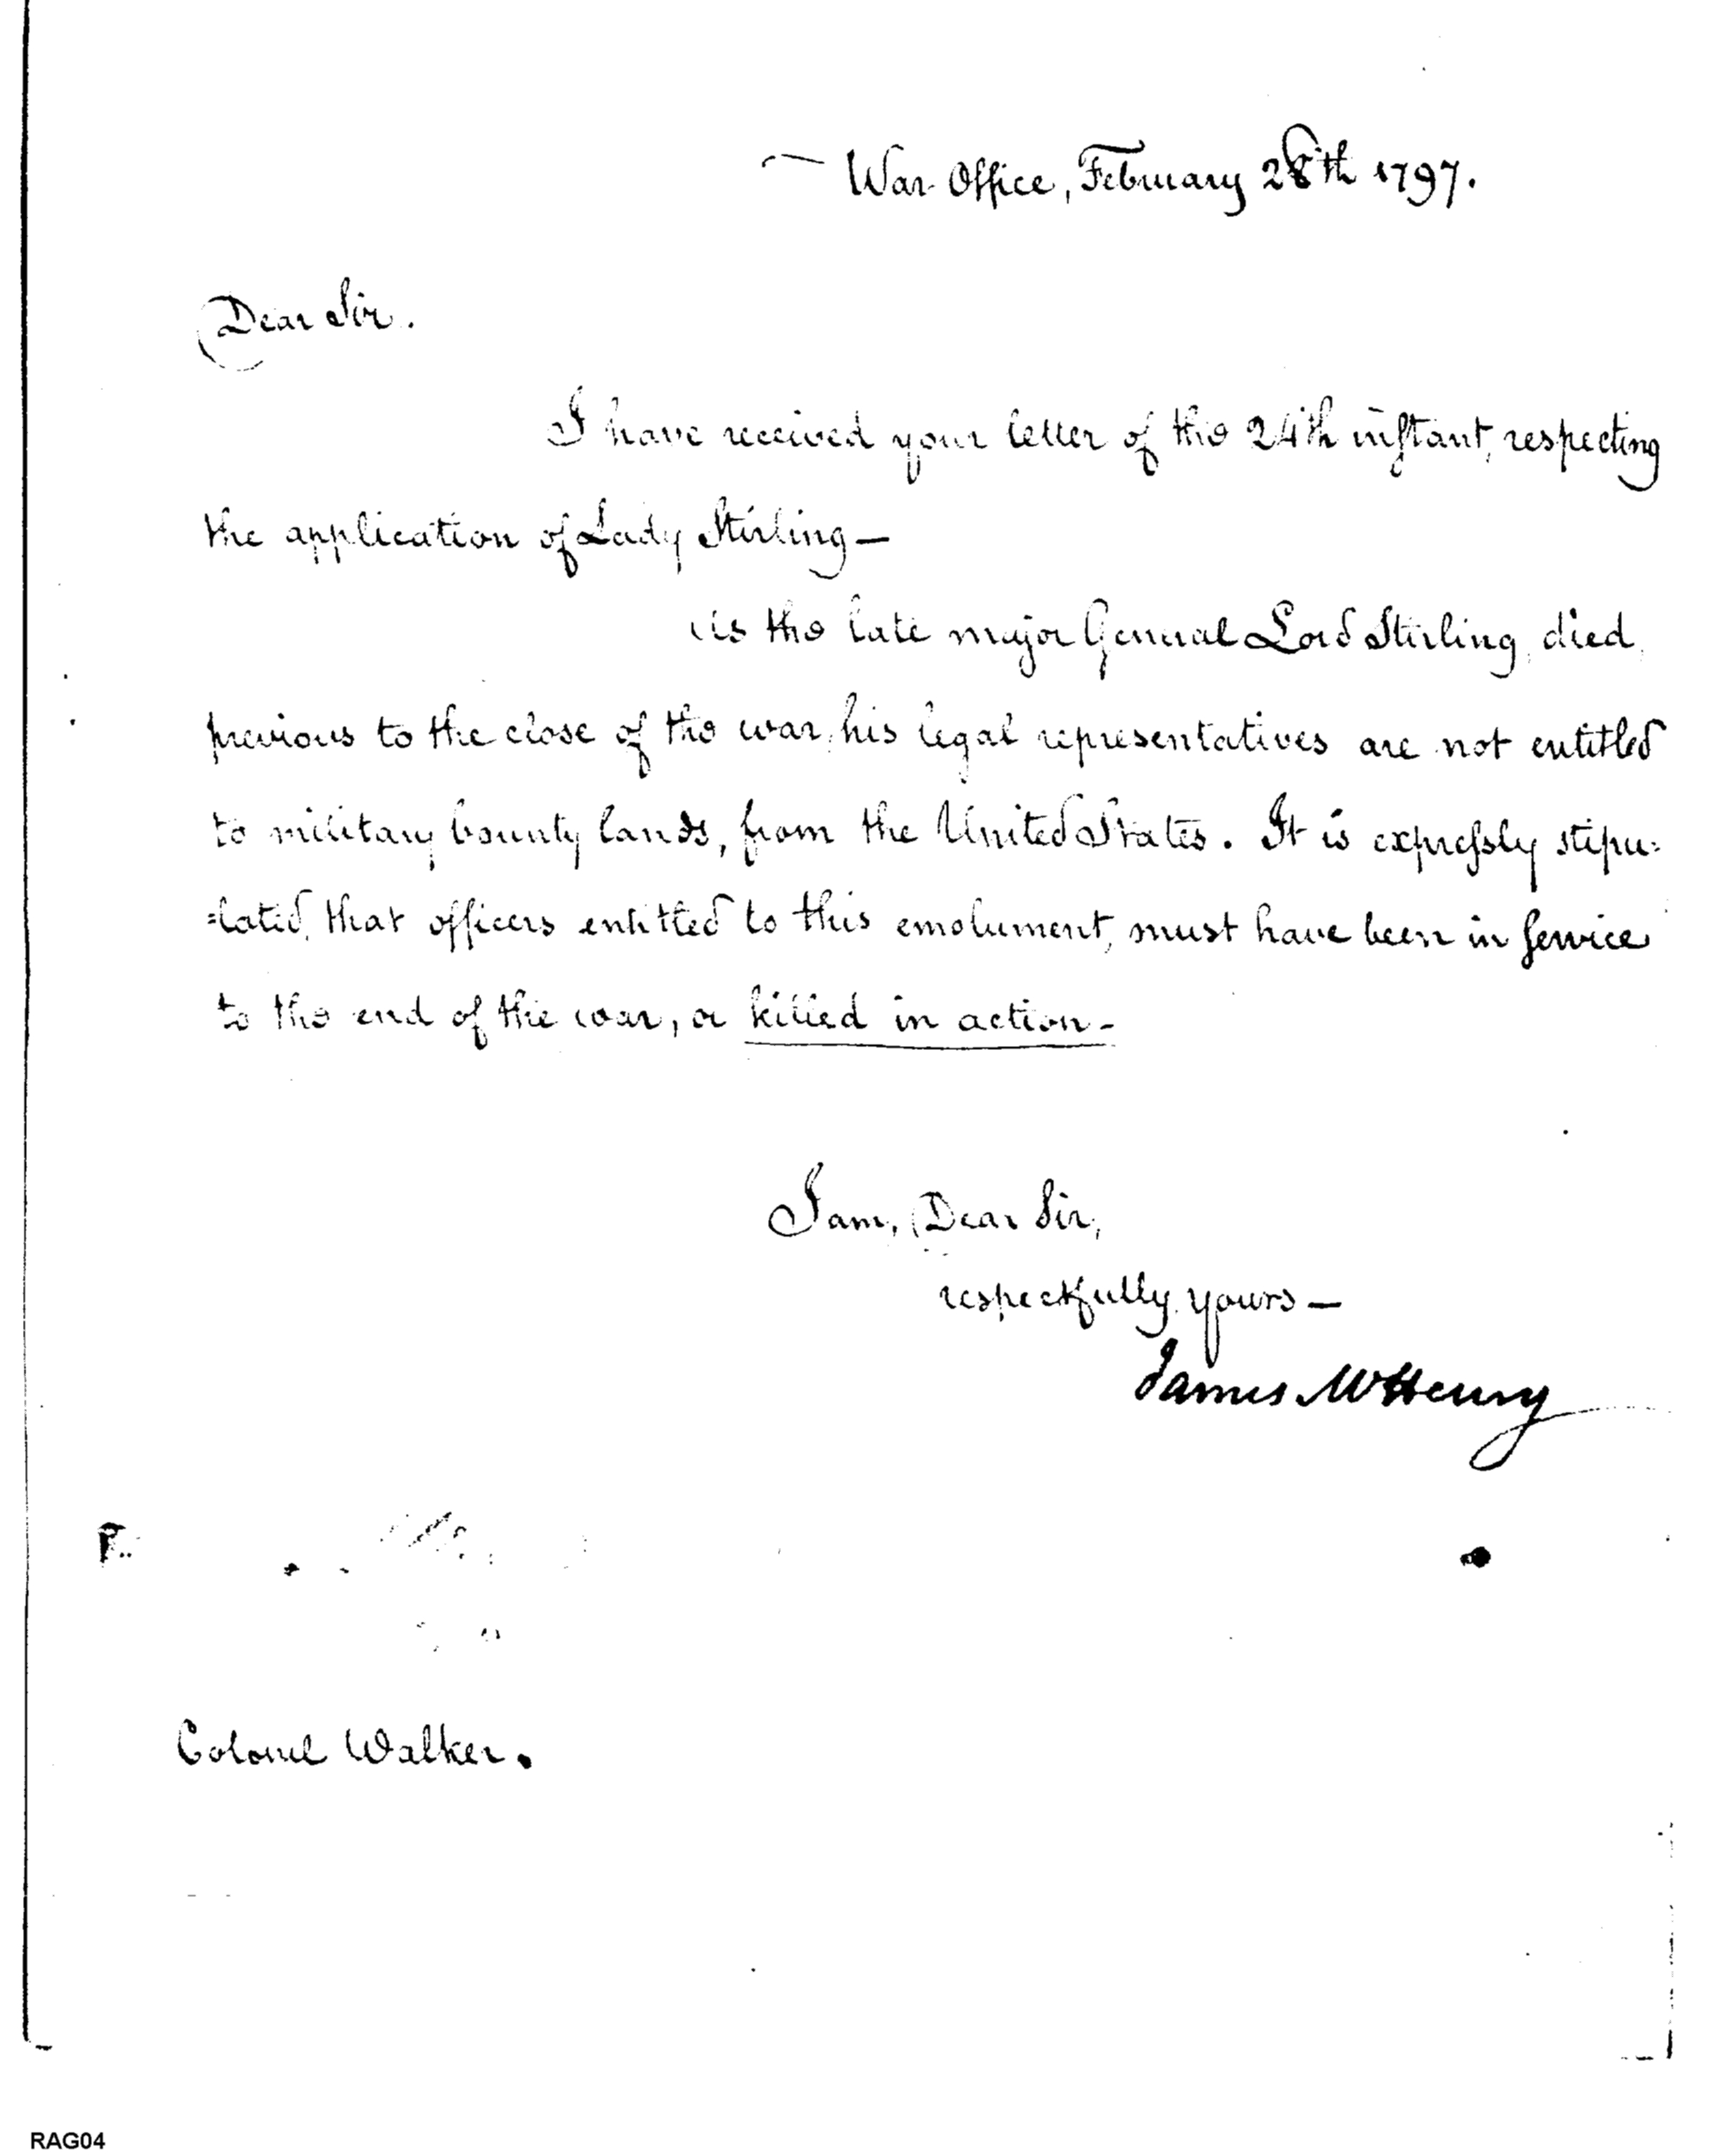 War Office, February 28th 1797.
Dear Sir.
I have received your letter of the 24th instant, respecting
the application of Lady Stirling—
As the late major General Lord Stirling, died,
previous to the close of the war, his legal representatives are not entitled
to military bounty lands, from the United States. It is expressly stipu=
=lated, that officers entitled to this emolument, must have been in Service
to the end of the war, or killed in action-
I am, Dear Sir,
respectfully yours—
James McHenry
Colonel Walker.
RAG04